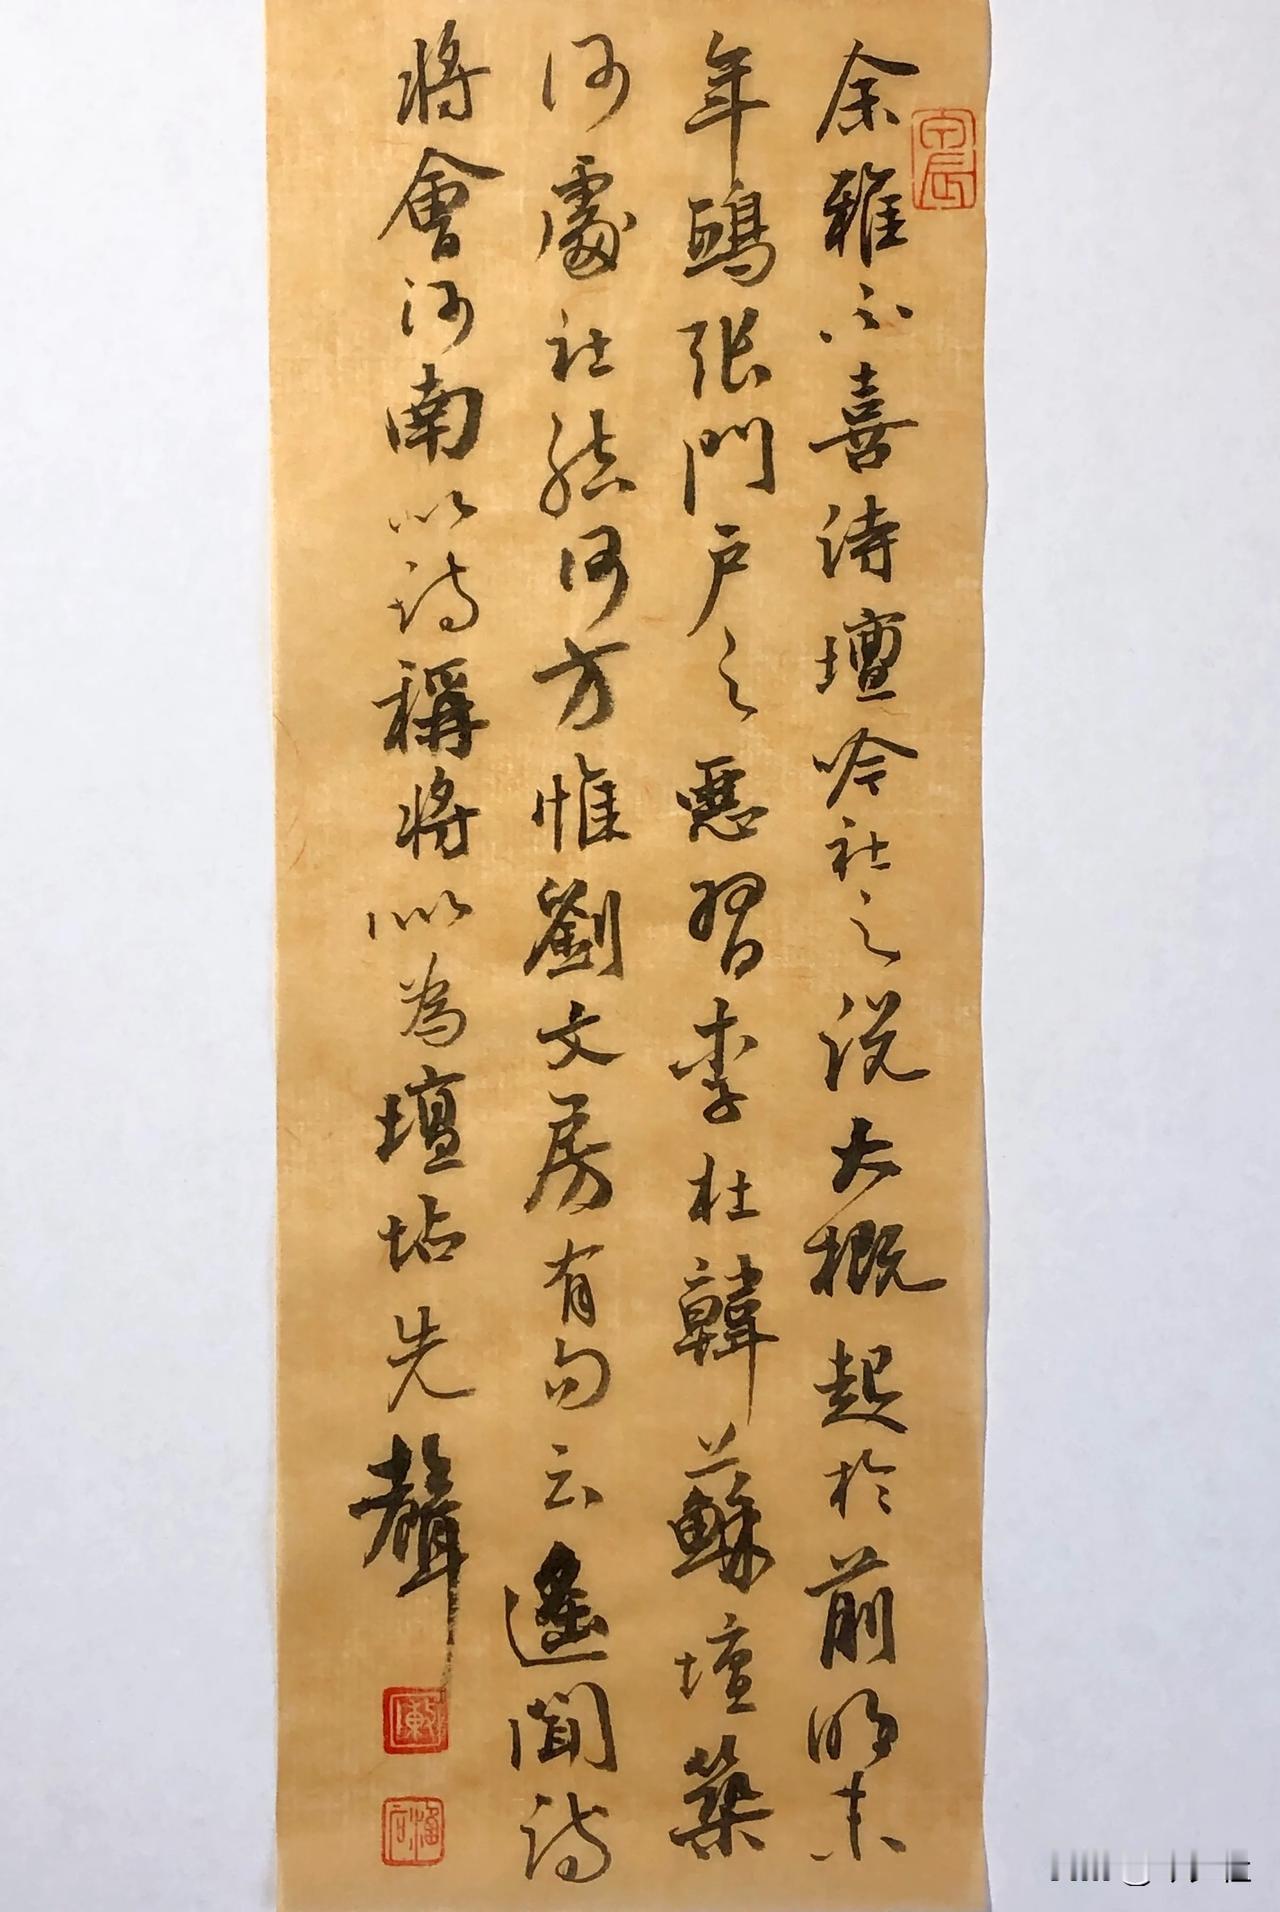 余雅不喜诗壇吟社之说大概起於前明末
年鸱张門户之惡習李杜韓蘇壇築
何處社結何方惟劉文房有句云遥聞诗
将會河南以诗稱将以為壇坫先聲